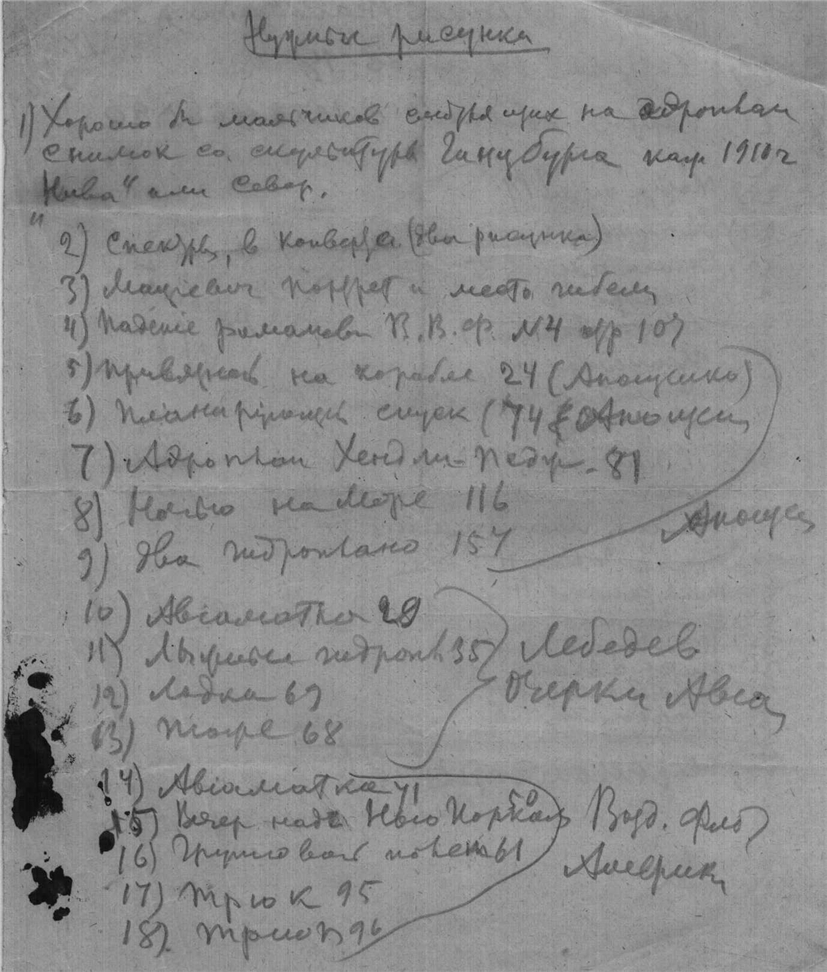 Нужны рисунка
1) Хорошо бы мальчиков смотрящих на аэроплан
снимок со скульптуры Гинцбурга каж 1910 г
"Нива" или Север.
2) Спектры, в конверте (два рисунка)
3) Мациевич портрет и место гибели
4) Падение В. В. Ф. №4 стр 107
5) привязной на корабле 24 (Анощенко)
6) Планирующий спуск (74 Анощен
7) Аэроплан Хендли-Педж - 81
8) Ночью на море 116
9) два гидроплано 157
Анощен
10) Авиаматка 29
11) гидропл 35
12) Лодка 69
13) тоже 68
Лебедев
Очерки Авиа
14) Авиаматка 41
15) Вечер надъ Нью Йорком 50
16) Групповой полеты 61
17) Трюк 95
18) трюк 96
Возд. Флот
Америки